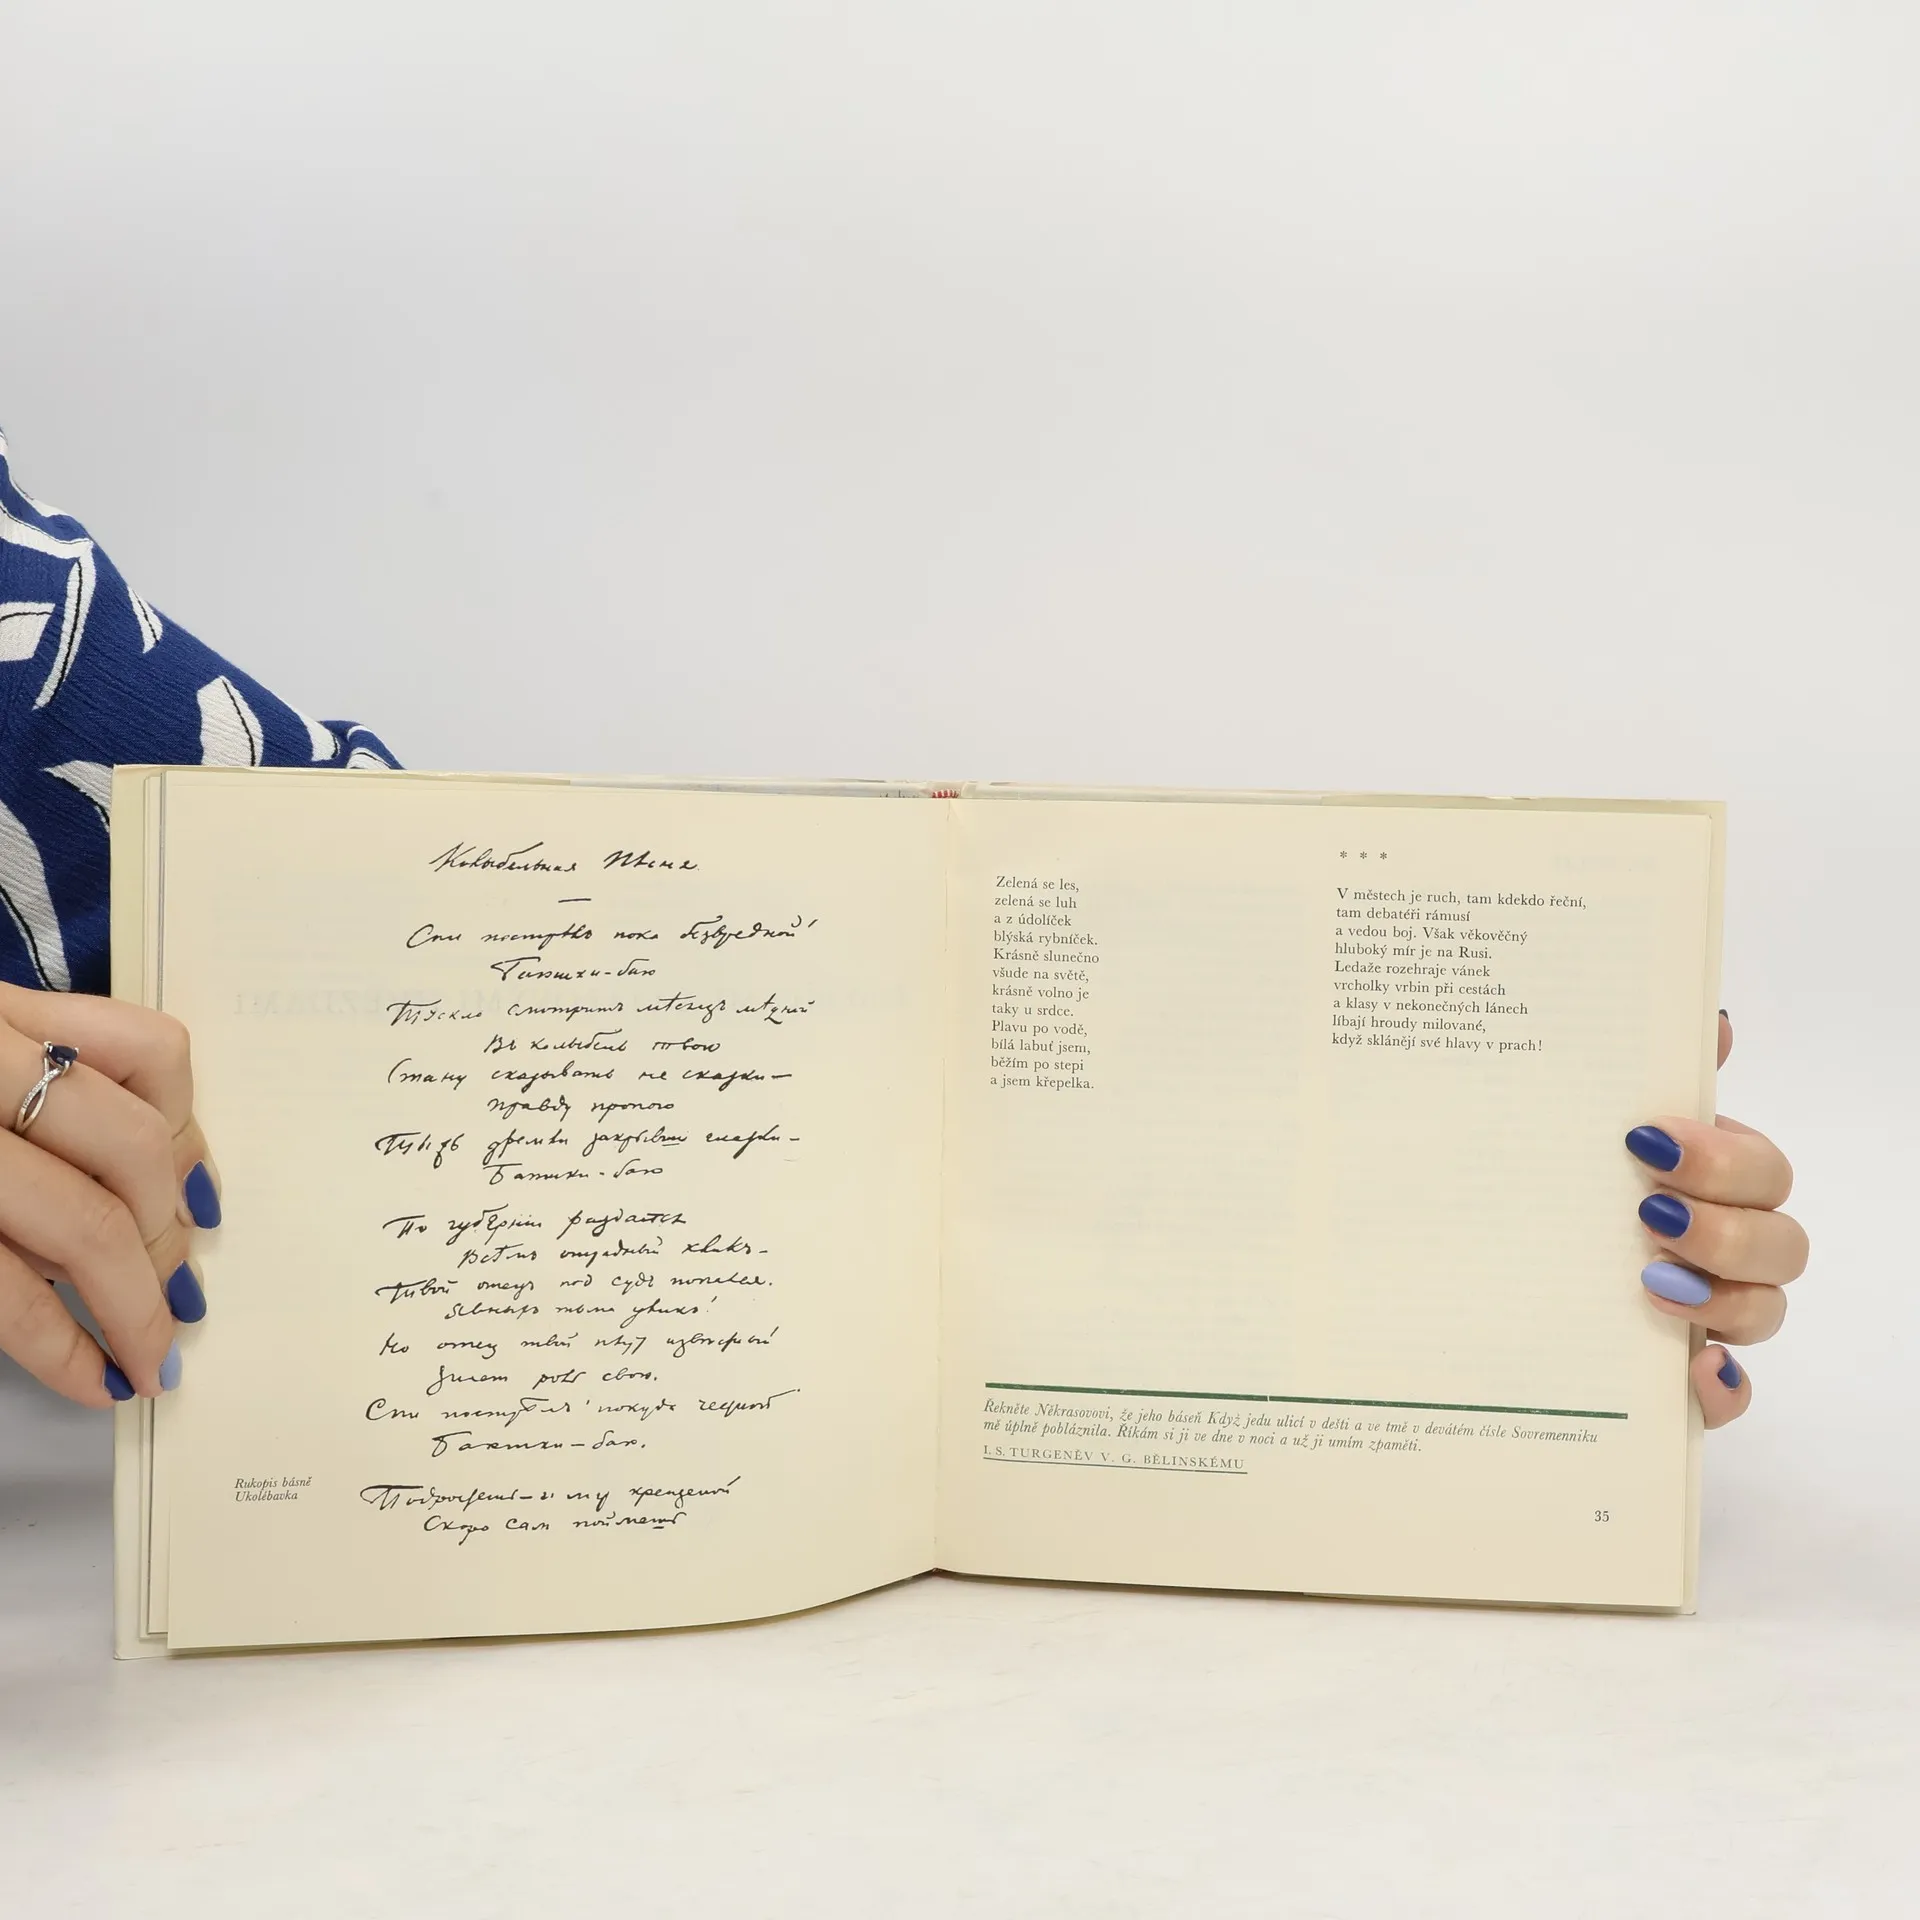 Колыбельная пѣсня
Спи пострѣлъ пока безвредной!
Баюшки-баю
Тускло смотритъ мѣсяцъ мѣдной
Въ колыбель твою
Стану сказывать не сказки—
Правду пропою
Ты жъ дремли закрывши глазки—
Баюшки-баю
По губерніи раздался
Всѣмъ отрадный кликъ—
Твой отецъ под судъ попался.
Явныхъ тьма уликъ!
Но отец твой плут извѣстный
Знаетъ роль свою.
Спи пострѣлъ покуда честной
Баюшки—баю.
Подростешь—и міръ крещеной
Скоро самъ поймешь
Rukopis básně
Ukolébavka
Zelená se les,
zelená se luh
a z údolíček
blýská rybníček.
Krásně slunečno
všude na světě,
krásně volno je
taky u srdce.
Plavu po vodě,
bílá labuť jsem,
běžím po stepi
a jsem křepelka.
* * *
V městech je ruch, tam kdekdo řeční,
tam debatéři rámusí
a vedou boj. Však věkověčný
hluboký mír je na Rusi.
Ledaže rozehraje vánek
vrcholky vrbin při cestách
a klasy v nekonečných lánech
líbají hroudy milované,
když sklánějí své hlavy v prach!
Řekněte Někrasovovi, že jeho báseň Když jedu ulicí v dešti a ve tmě v devátém čísle Sovremenniku
mě úplně pobláznila. Říkám si ji ve dne v noci a už ji umím zpaměti.
I. S. TURGENĚV V. G. BĚLINSKÉMU
35